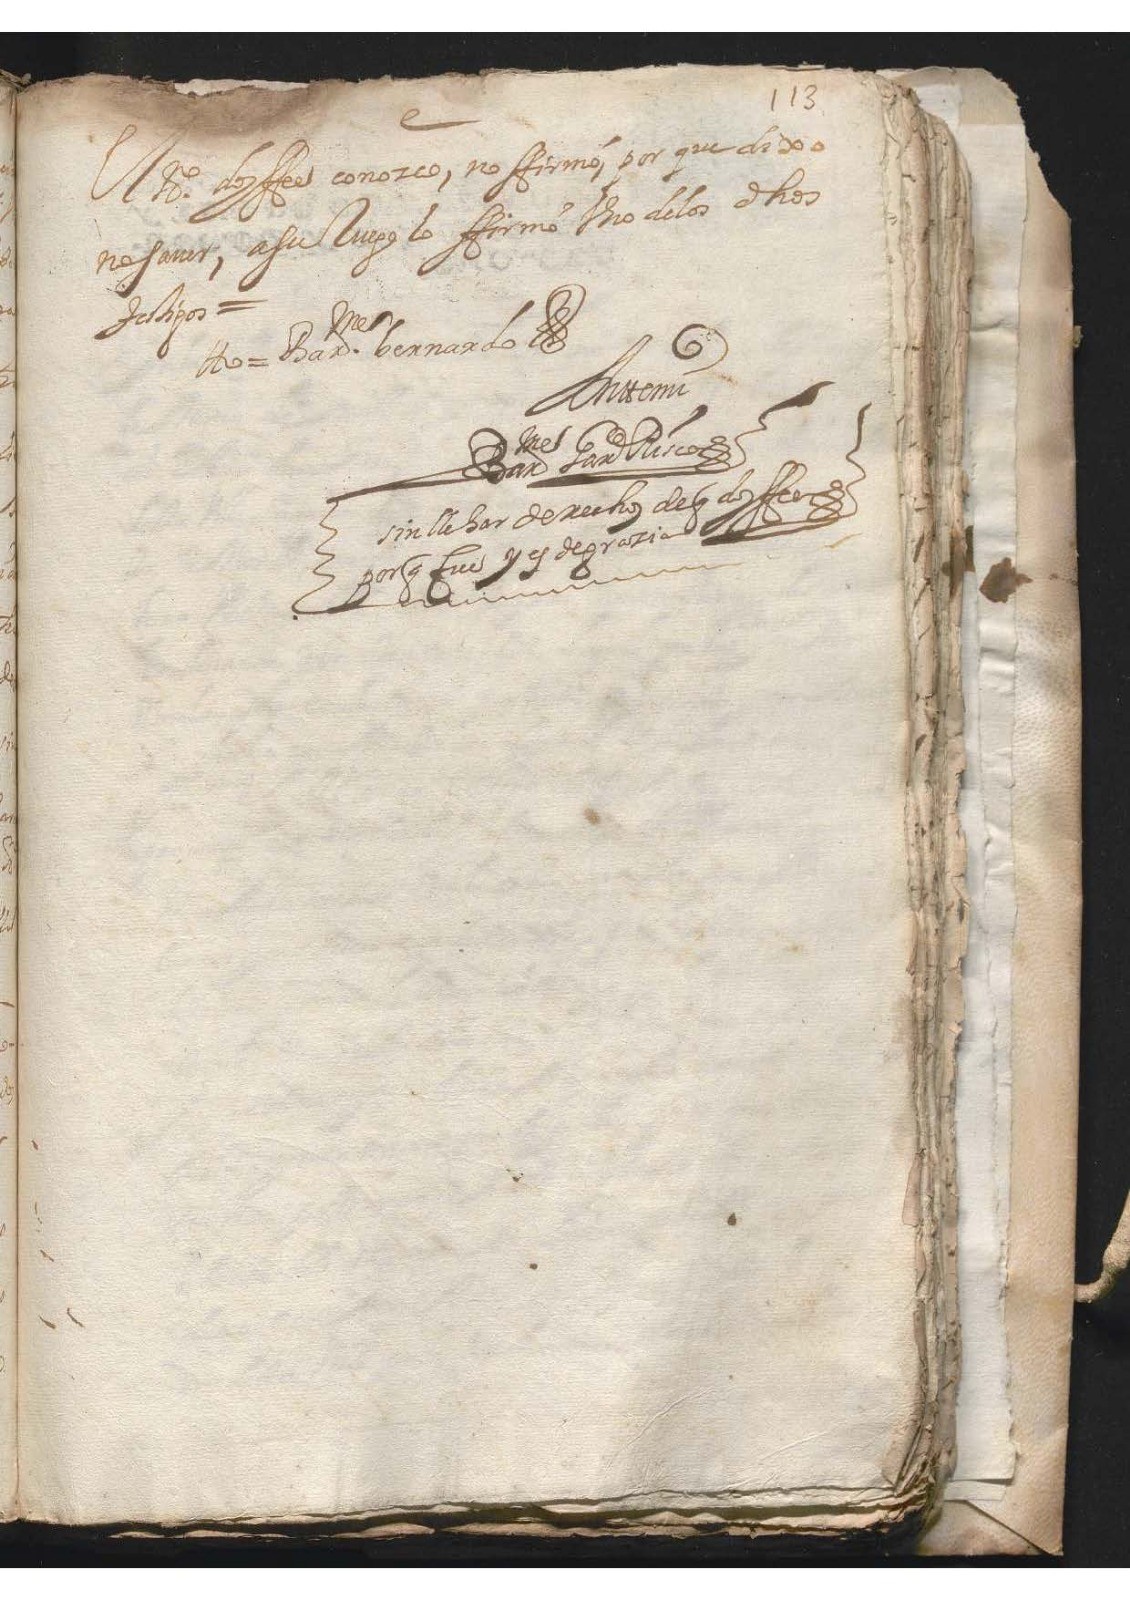 113
doy ffee conozco, no ffirmó, por que dixo
no saver, a su Ruego lo ffirmó Uno delos dhos
testigos =
tto = Barme. bernardo
Antemi
Barme Gard Risco
sin llebar derechos de q doy ffee
porq fue y es de grazia